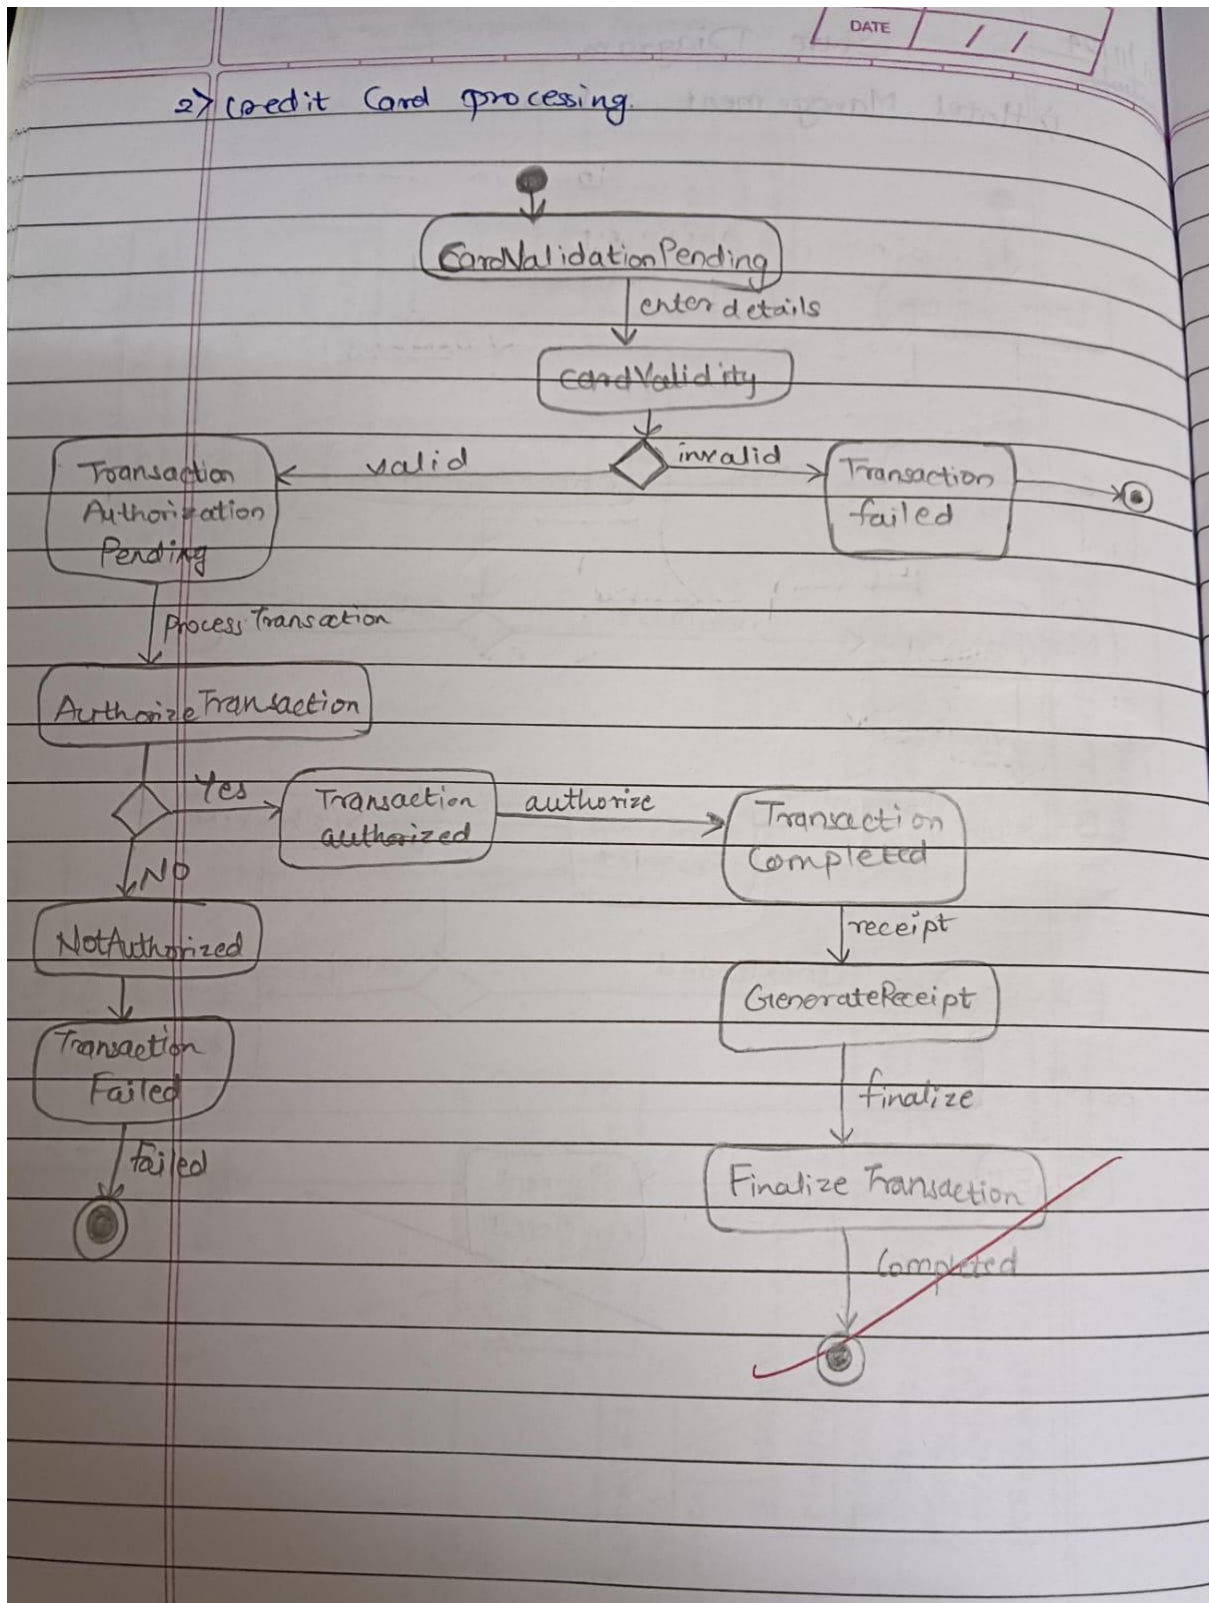 DATE / /
2) Credit Card processing.
CardValidationPending
enter details
cardValidity
valid
invalid
Transaction
Authorization
Pending
Transaction
failed
process Transaction
Authorize Transaction
Yes
Transaction
authorized
authorize
Transaction
Completed
NO
receipt
NotAuthorized
GenerateReceipt
Transaction
Failed
finalize
Failed
Finalize Transaction
Completed